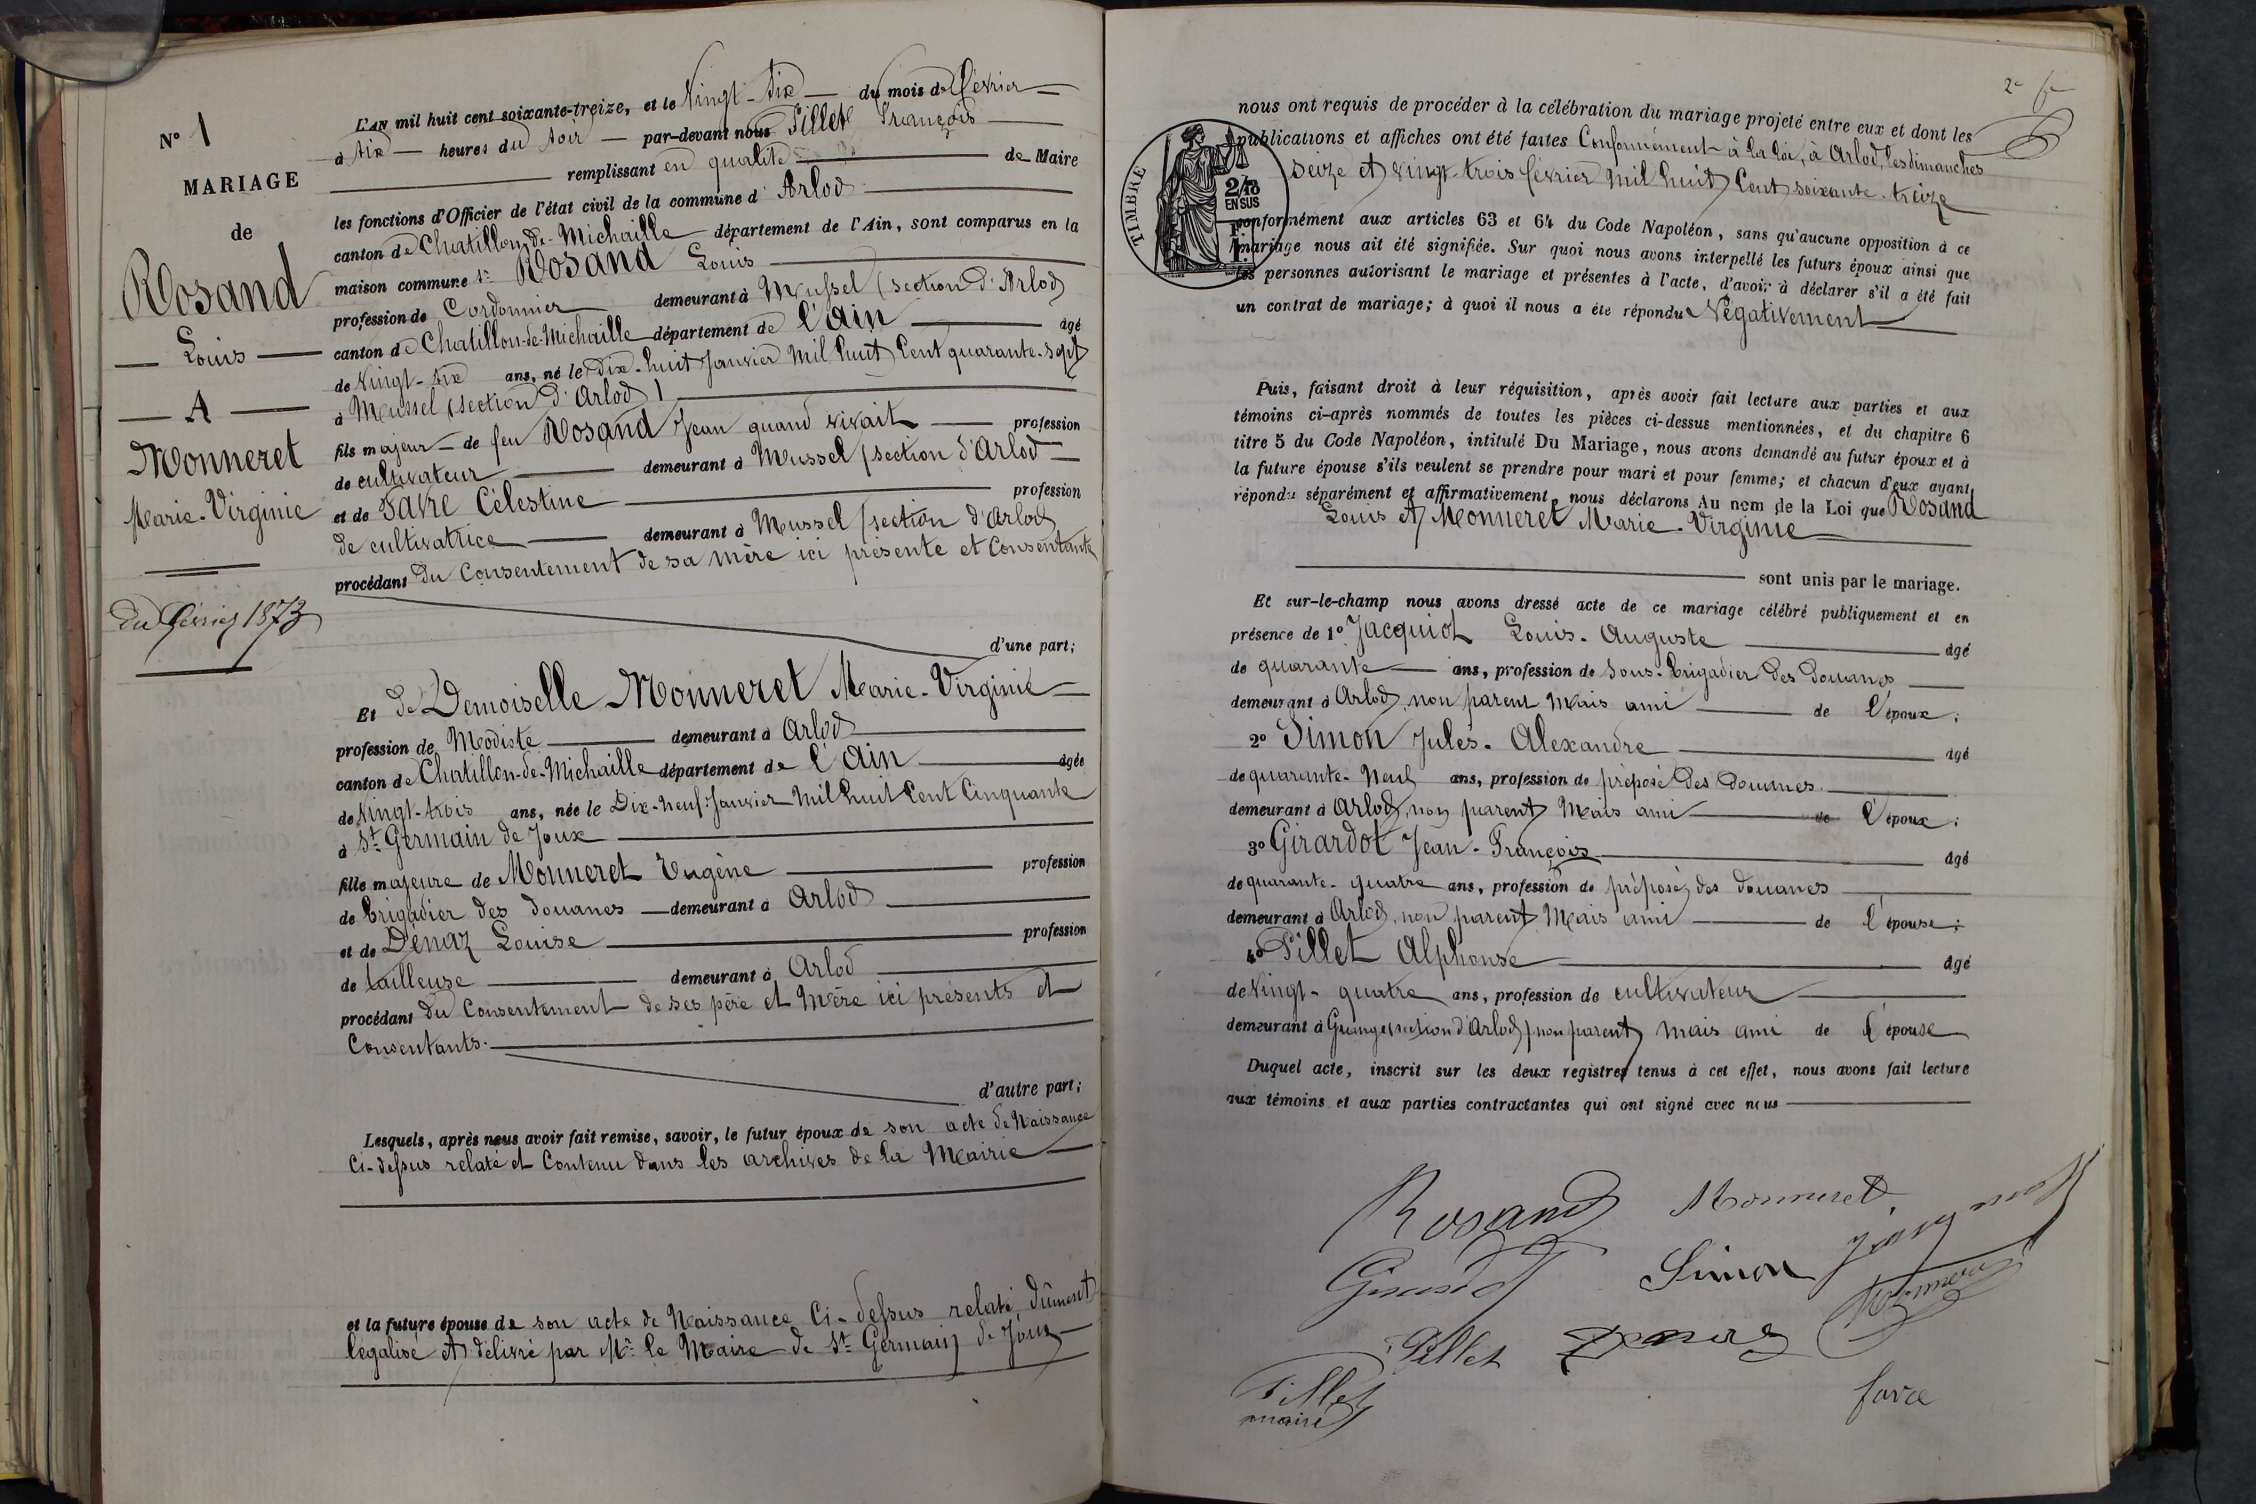 N° 1
MARIAGE
de
Rosand
Louis
A
Monneret
Marie-Virginie
Du février 1873
L'AN mil huit cent soixante-treize, et le Vingt-six du mois de février
à six heures du soir par-devant nous Pillet François
remplissant en qualité de Maire
les fonctions d'Officier de l'état civil de la commune d'Arlod
canton de Chatillon-de-Michaille département de l'Ain, sont comparus en la
maison commune sr Rosand Louis
profession de Cordonnier demeurant à Mussel (section d'Arlod)
canton de Chatillon-de-Michaille département de l'Ain agé
de Vingt-six ans, né le Dix-huit Janvier Mil huit Cent quarante-sept
à Mussel (section d'Arlod)
fils majeur de feu Rosand Jean quand vivait profession
de cultivateur demeurant à Mussel (section d'Arlod
et de Favre Célestine profession
de cultivatrice demeurant à Mussel (section d'Arlod
procédant Du Consentement de sa mère ici présente et Consentante
d'une part;
Et de Demoiselle Monneret Marie-Virginie
profession de Modiste demeurant à Arlod
canton de Chatillon-de-Michaille département de l'Ain agée
de Vingt-trois ans, née le Dix-neuf Janvier Mil huit Cent Cinquante
à St Germain de Joux
fille majeure de Monneret Eugène profession
de Brigadier des douanes demeurant à Arlod
et de Dénaz Louise profession
de tailleuse demeurant à Arlod
procédant du Consentement de ses père et Mère ici présents et
Consentants.
d'autre part;
Lesquels, après nous avoir fait remise, savoir, le futur époux de son acte de Naissance
Ci-dessus relaté et Contenu dans les archives de la Mairie
et la future épouse de son acte de Naissance Ci-dessus relaté, dûment
légalisé et délivré par Mr le Maire de St Germain de Joux
2e f
nous ont requis de procéder à la célébration du mariage projeté entre eux et dont les
publications et affiches ont été faites Conformément à la loi, à Arlod, les dimanches
seize et vingt-trois février Mil huit Cent soixante-treize
TIMBRE
2/10
EN SUS
conformément aux articles 63 et 64 du Code Napoléon, sans qu'aucune opposition à ce
mariage nous ait été signifiée. Sur quoi nous avons interpellé les futurs époux ainsi que
les personnes autorisant le mariage et présentes à l'acte, d'avoir à déclarer s'il a été fait
un contrat de mariage; à quoi il nous a été répondu Négativement
Puis, faisant droit à leur réquisition, après avoir fait lecture aux parties et aux
témoins ci-après nommés de toutes les pièces ci-dessus mentionnées, et du chapitre 6
titre 5 du Code Napoléon, intitulé Du Mariage, nous avons demandé au futur époux et à
la future épouse s'ils veulent se prendre pour mari et pour femme; et chacun d'eux ayant
répondu séparément et affirmativement, nous déclarons Au nom de la Loi que Rosand
Louis et Monneret Marie-Virginie
sont unis par le mariage.
Et sur-le-champ nous avons dressé acte de ce mariage célébré publiquement et en
présence de 1° Jacquiot Louis-Auguste agé
de quarante ans, profession de Sous-Brigadier des douanes
demeurant à Arlod, non parent Mais ami de l'époux;
2° Simon Jules-Alexandre agé
de quarante-neuf ans, profession de préposé des douanes
demeurant à Arlod, non parent Mais ami de l'époux;
3° Girardot Jean-François agé
de quarante-quatre ans, profession de préposé des douanes
demeurant à Arlod, non parent Mais ami de l'épouse;
4° Pillet Alphonse agé
de Vingt-quatre ans, profession de cultivateur
demeurant à Granges (section d'Arlod) non parent Mais ami de l'épouse
Duquel acte, inscrit sur les deux registres tenus à cet effet, nous avons fait lecture
aux témoins et aux parties contractantes qui ont signé avec nous
Rosand Monneret
Girardot Simon Jacquiot
Monneret
Pillet Denaz
Pillet
maire
favre